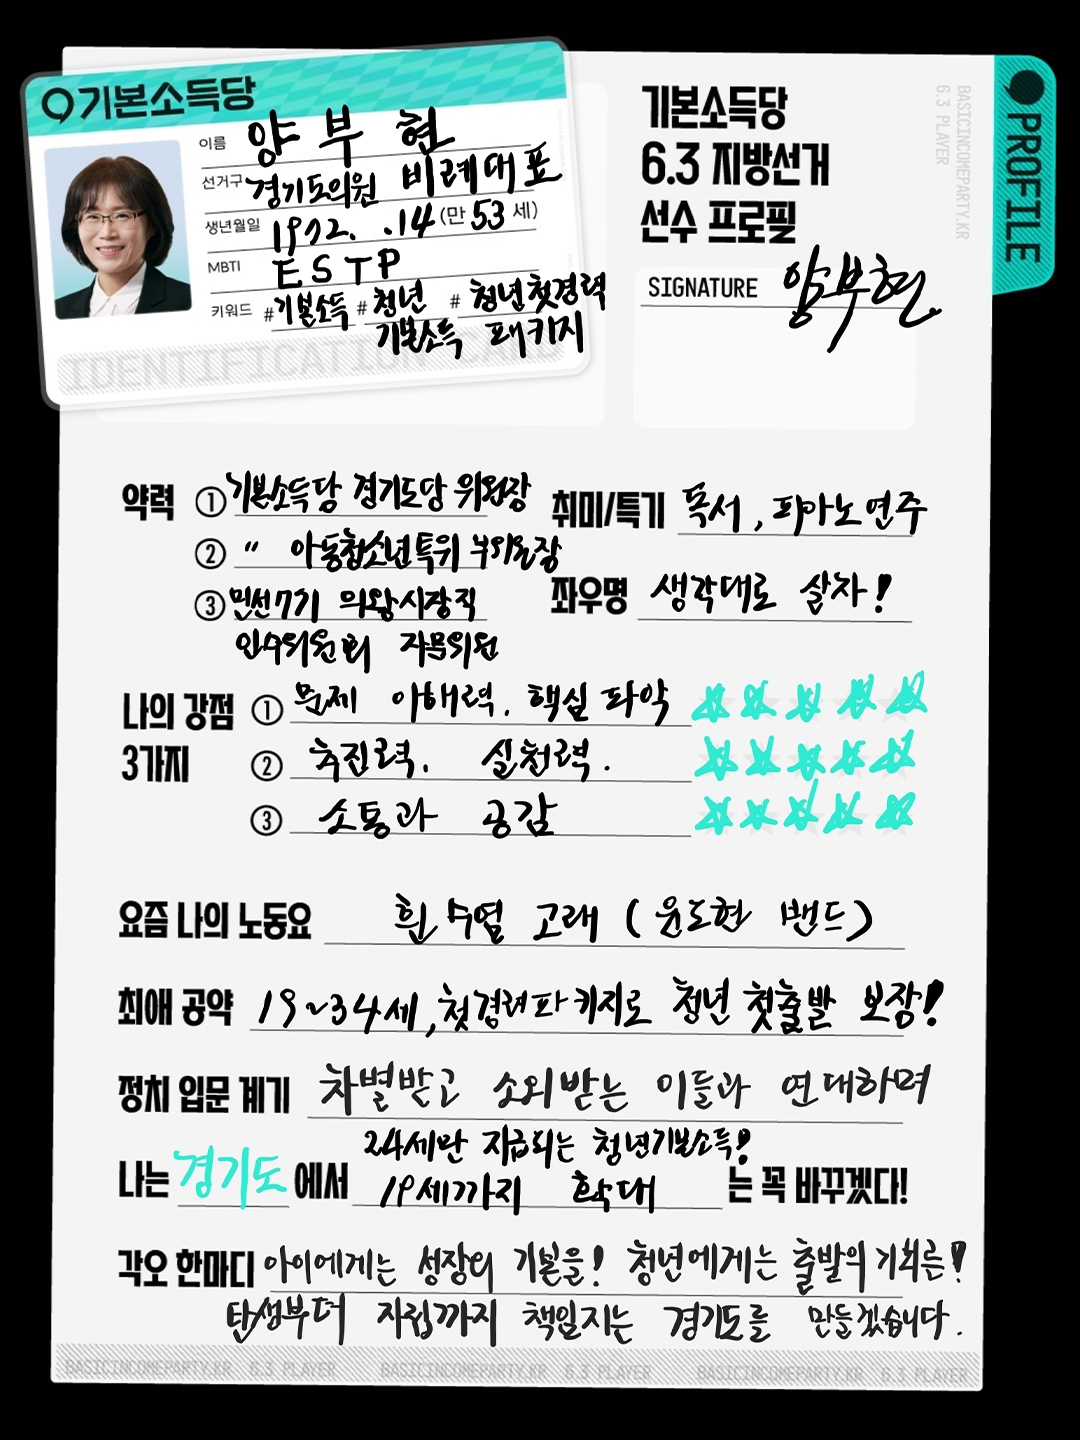 기본소득당
이름 양부현
선거구 경기도의원 비례대표
생년월일 1972. .14 (만 53 세)
MBTI ESTP
키워드 #기본소득 #청년 기본소득 #청년첫경력 패키지
IDENTIFICATION CARD
기본소득당
6.3 지방선거
선수 프로필
SIGNATURE 양부현
BASICINCOMEPARTY.KR
6.3 PLAYER
PROFILE
약력 ① 기본소득당 경기도당 위원장
② " 아동청소년특위 부위원장
③ 민선7기 의왕시장직
인수위원회 자문위원
취미/특기 독서, 피아노연주
좌우명 생각대로 살자!
나의 강점
3가지
① 문제 이해력. 핵심 파악
② 추진력. 실천력.
③ 소통과 공감
요즘 나의 노동요 흰수염 고래 (윤도현 밴드)
최애 공약 19~34세, 첫경력패키지로 청년 첫출발 보장!
정치 입문 계기 차별받고 소외받는 이들과 연대하며
24세만 지급되는 청년기본소득!
나는 경기도에서 19세까지 확대 는 꼭 바꾸겠다!
각오 한마디 아이에게는 성장의 기본을! 청년에게는 출발의 기회를!
탄생부터 자립까지 책임지는 경기도를 만들겠습니다.
BASICINCOMEPARTY.KR 6.3 PLAYER BASICINCOMEPARTY.KR 6.3 PLAYER BASICINCOMEPARTY.KR 6.3 PLAYER